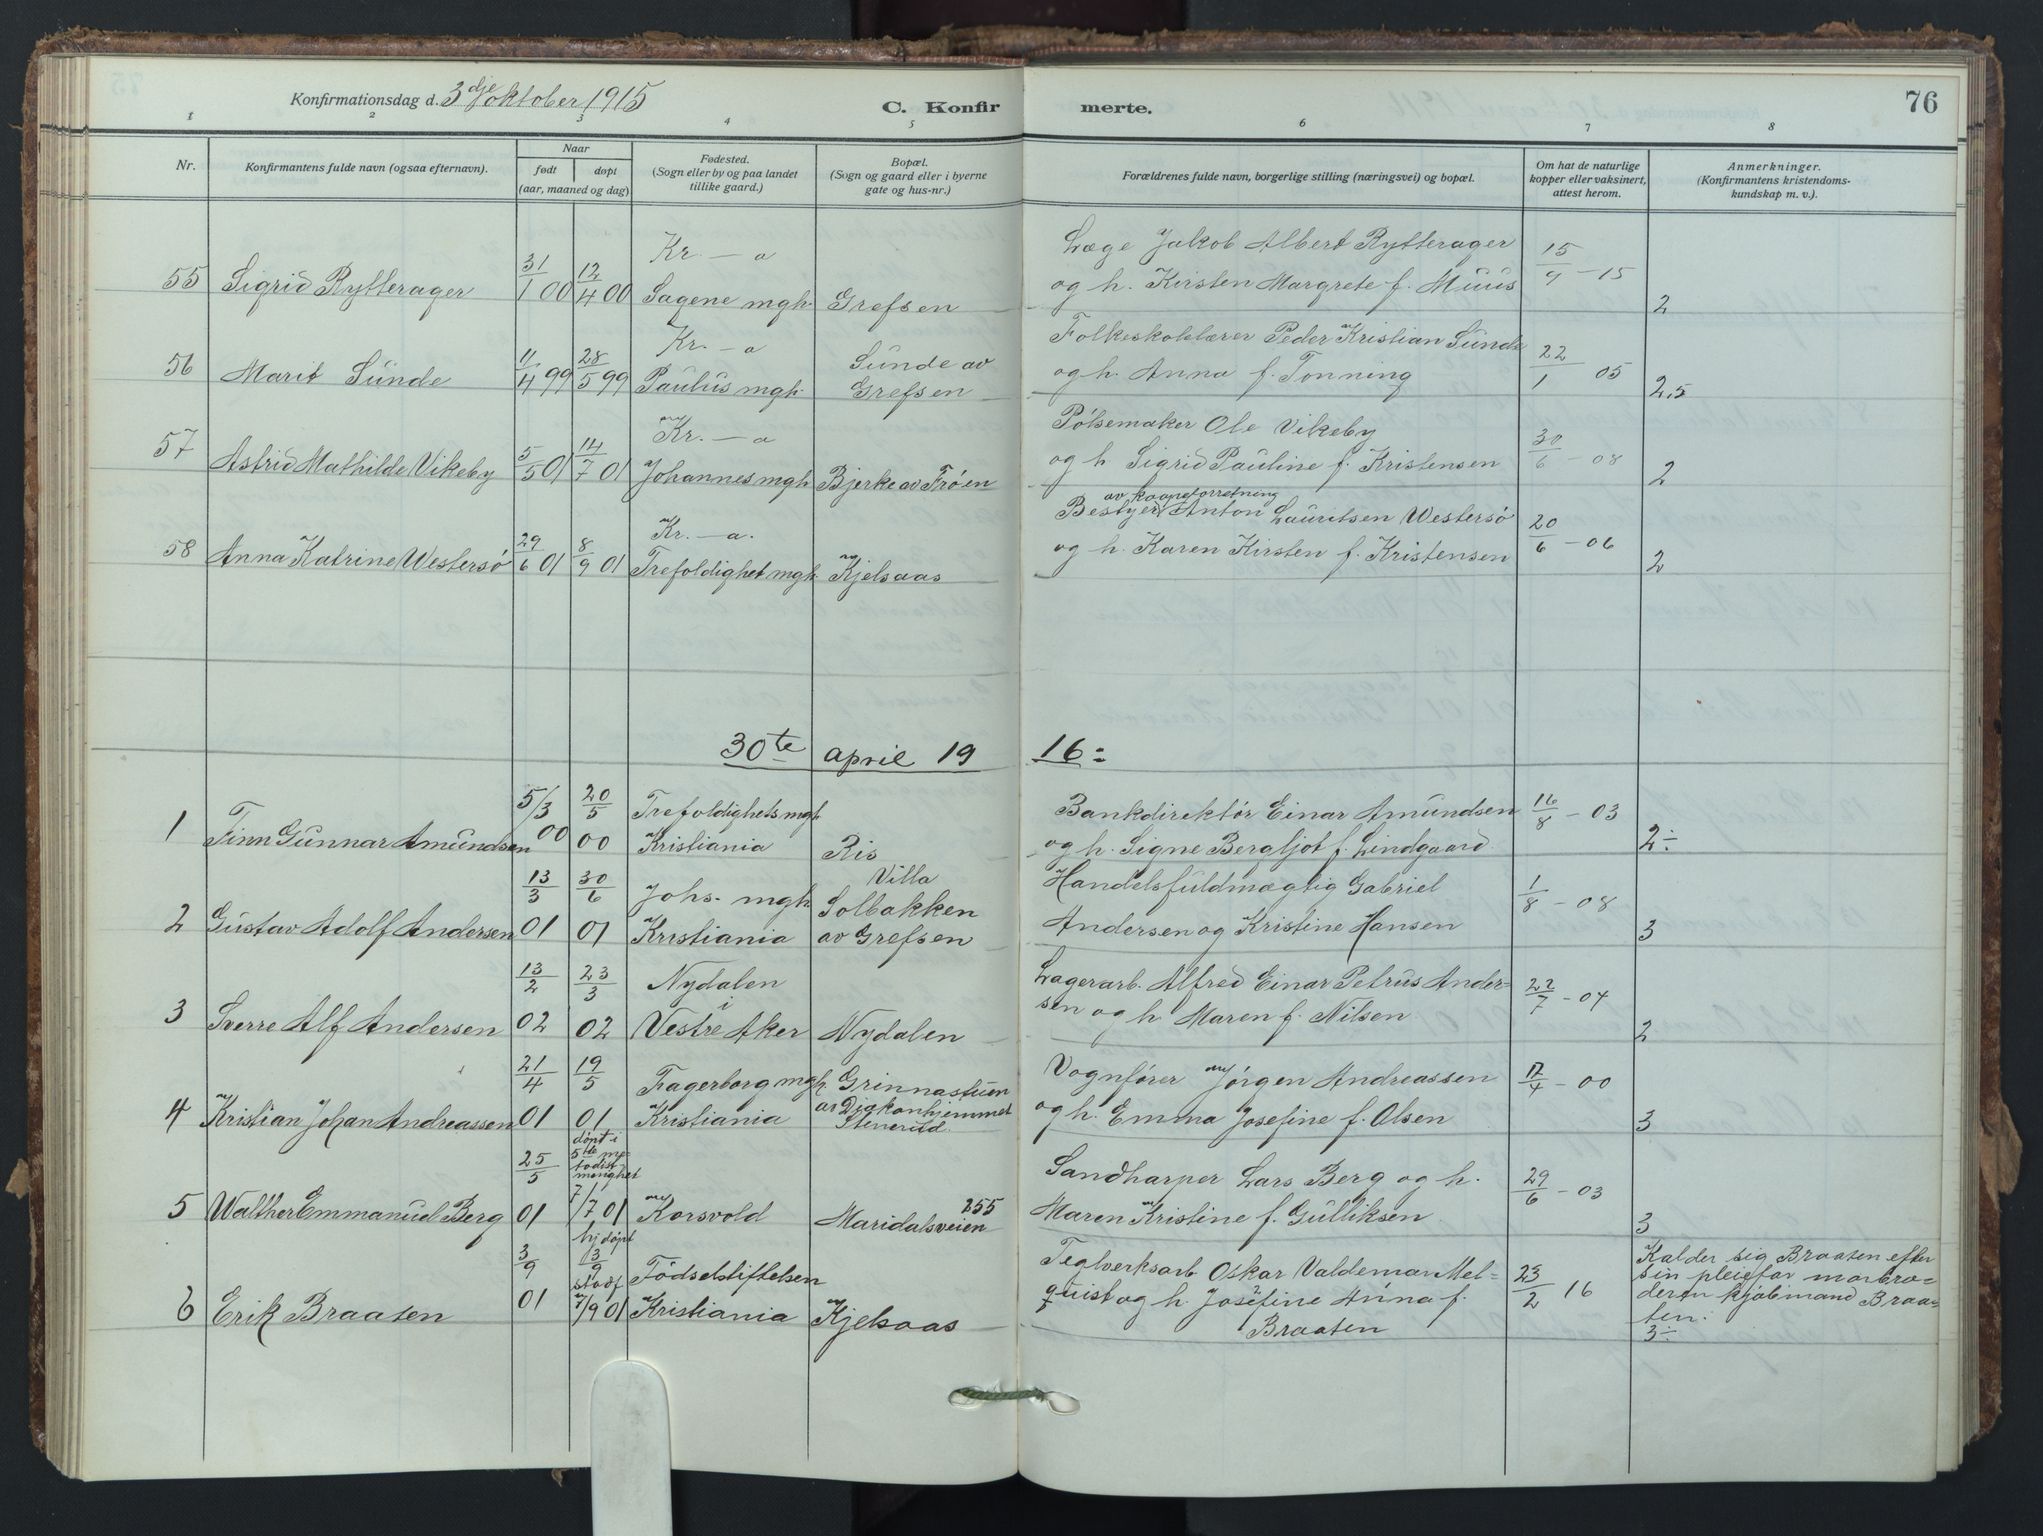 Konfirmationsdag d. 3dje oktober 1915
C. Konfir merte.
76
1 2 3 4 5 6 7 8
Nr.
Konfirmantens fulde navn (ogsaa efternavn).
Naar
født døpt
(aar, maaned og dag)
Fødested.
(Sogn eller by og paa landet
tillike gaard.)
Bopæl.
(Sogn og gaard eller i byerne
gate og hus-nr.)
Forældrenes fulde navn, borgerlige stilling (næringsvei) og bopæl.
Om hat de naturlige
kopper eller vaksinert,
attest herom.
Anmerkninger.
(Konfirmantens kristendoms-
kundskap m. v.).
Kr. - a Læge Jakob Albert Rytterager
55 Sigrid Rytterager 31/1 00 12/4 00 Sagene mgh. Grefsen og h. Kirsten Margrete f. Muus 15/9 - 15 2
Kr. - a Sunde av Folkeskolelærer Peder Kristian Sunde
56 Marit Sunde 11/4 99 28/5 99 Paulus mgh. Grefsen og h. Anna f. Tonning 22/1 05 2,5
Kr. - a Pølsemaker Ole Vikeby
57 Astrid Mathilde Vikeby 5/5 01 14/7 01 Johannes mgh. Bjerke av Frøen og h. Sigrid Pauline f. Kristensen 30/6 - 08 2
Kr. - a. Bestyer Anton Lauritsen Westersø
58 Anna Katrine Westersø 29/6 01 8/9 01 Trefoldighet mgh. Kjelsaas og h. Karen Kirsten f. Kristensen 20/6 - 06 2
30te april 1916:
5/3 20/5 Trefoldighets mgh Bankdirektør Einar Amundsen 16/8 - 03
1 Finn Gunnar Amundsen 00 00 Kristiania Ris og h. Signe Bergljot f. Lindgaard. 2÷
13/3 30/6 Johs. mgh. Villa Solbakken Handelsfuldmægtig Gabriel 1/8 - 08
2 Gustav Adolf Andersen 01 01 Kristiania av Grefsen Andersen og Kristine Hansen 3
13/2 23/3 Nydalen i Lagerarb. Alfred Einar Petrus Ander- 22/7 - 04
3 Sverre Alf Andersen 02 02 Vestre Aker Nydalen sen og h. Maren f. Nilsen 2
21/4 19/5 Fagerborg mgh. Grinnastuen Vognfører Jørgen Andreassen 17/4 - 00
4 Kristian Johan Andreassen 01 01 Kristiania av Diakonhjemmet og h. Emma Josefine f. Olsen 3
Stenerud
døpt i
5te me-
todist
menighet
25/5 Sandharper Lars Berg og h. 29/6 - 03
5 Walther Emmanuel Berg 01 7/7 01 Korsvold Maridalsveien 255 Maren Kristine f. Gulliksen 3
hj døpt
3/9 13/9 stadf Fødselstiftelsen Teglverksarb Oskar Valdemar Mel-
6 Erik Braaten 01 7/9 01 Kristiania Kjelsaas quist og h. Josefine Anna f. 23/2 16
Braaten
Kalder sig Braaten efter
sin pleiefar morbro-
deren kjøbmand Braa-
ten.
3÷